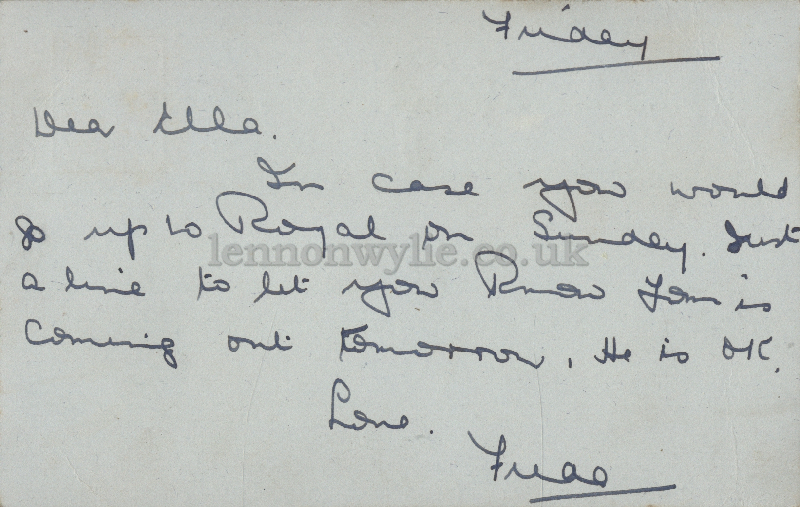 Friday
Dea Ella.
In case you would
go up to Royal on Sunday. Just
lennonwylie.co.uk
a line to let you know Tom is
Coming out tomorrow. He is OK.
Love.